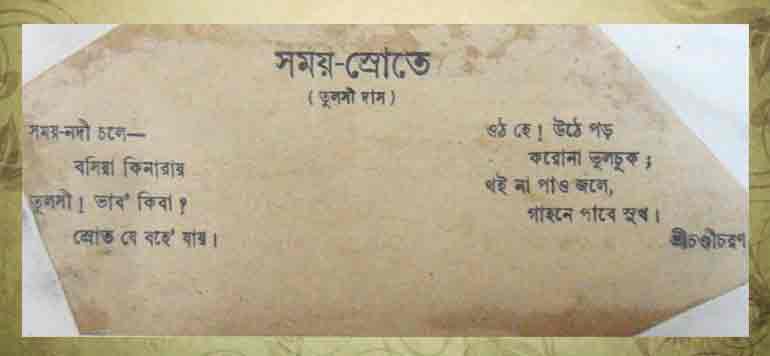 সময়-স্রোতে
( তুলসী দাস )
সময়-নদী চলে—
বসিয়া কিনারায়
তুলসী ! ভাব' কিবা ?
স্রোত যে বহে' যায় ।
ওঠ হে ! উঠে পড়
করোনা ভুলচুক ;
থই না পাও জলে,
গাহনে পাবে সুখ ।
শ্রীচণ্ডীচরণ